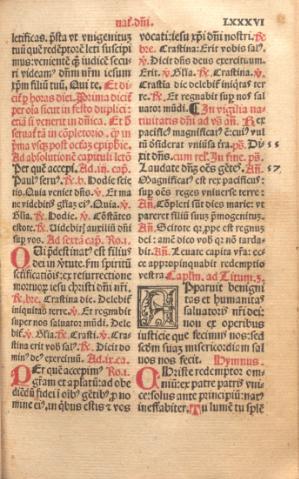 nat. dñi.
LXXXVI
letificas. pr̃sta vt vnigenituʒ
tuũ quẽ redẽptorẽ leti suscipi
mus: venientẽ qʒ iudicẽ secu
ri videamꝰ dñm nr̃m iesum
xpm filiũ tuũ. Qui te. Et di
q̃ dicit̃ oĩa sicut in festo duplici:
etiã si venerit in dñica. Et
seruat̃ tã in cõpletorio. qʒ in
pma vsqʒ post octaʒ epiphie.
Ad absolutionẽ capituli lectõ
Per quẽ accepi. Ad .iii. cap̃.
Paulꝰ seruꝰ. ℟. b. Hodie scie
tis. Quia veniet dñs. ℣. Et
mane videbitꝰ gl̃iaʒ eiꝰ. Quia. ℣.
Gl̃ia. ℟. Hodie. ℣. Cõstãtes
estote. ℟. Videbitꝭ auxiliũ dñi
sup vos. Ad sextã cap̃. Ro. i.
Qui p̃destinatꝰ est filius
dei in v̓tute. fm spiritũ
sctificatiõis: ex resurrectione
mortuoꝝ iesu christi dñi nr̃i.
℟. bre. Crastina die. Delebit̃
iniquitas terre. ℣. Et regnabit
super nos saluator mũdi. Dele
bit̃. ℣. Gl̃ia. ℟. Crasti. ℣. Cra
stina erit vob sal̃. ℟. Dicit do
minꝰ deꝰ exercituũ. Ad .ix. ca
Per quẽ accepimꝰ Ro. i.
gr̃am et aplatũ: ad obe
diẽdũ fidei ĩ oĩbꝰ gẽtibꝰ p̃ no
mine eiꝰ, in qbus estis & vos
vocati: iesu xp̃i dñi nostri. ℟.
bre. Crastina: Erit vobis sal̃.
℣. Dicit dñs deus exercituum.
Erit. ℣. Gl̃ia. ℟. Crastina. ℣.
Crastia die delebit̃ iniqtas ter
re. ℟. Et regnabit sup nos sal
uator mũdi. In vigilia na
tiuitatis dñi ad vs̃ añ. Rex
pacificꝰ magnificatꝰ ẽ: cuiꝰ vul
tũ d̃siderat vniuṡa tr̃a. ps̃. Di 55
xit dñs. cum rel̃. In fine. ps̃.
Laudate dñʒ oẽs gẽtes. Añ. 57
Magnificatꝰ est rex pacificꝰ:
sup oẽs reges vniuerse terre:
Añ. Cõpleti sũt dies marie: vt
pareret filiũ suuʒ p̃mogenituʒ.
Añ. Scitote qʒ ppe est regnuʒ
dei: amẽ dico vob qʒ nõ tarda
bit. Añ. Leuate capita vr̃a: ec
ce appropinquabit redemptio
vestra Capl̃m. ad Titum. 3.
APparuit benigni
tas et humanitas
saluatoris nr̃i dei:
non ex operibus
iusticie que fecimus nos: sed
secundũ suam misericordiam sal
uos nos fecit. Hymnus.
Christe redemptor om
niũ: ex patre patris vni
ce: solus ante principiũ: nat̃
ineffabiliter. Tu lumẽ tu splẽ